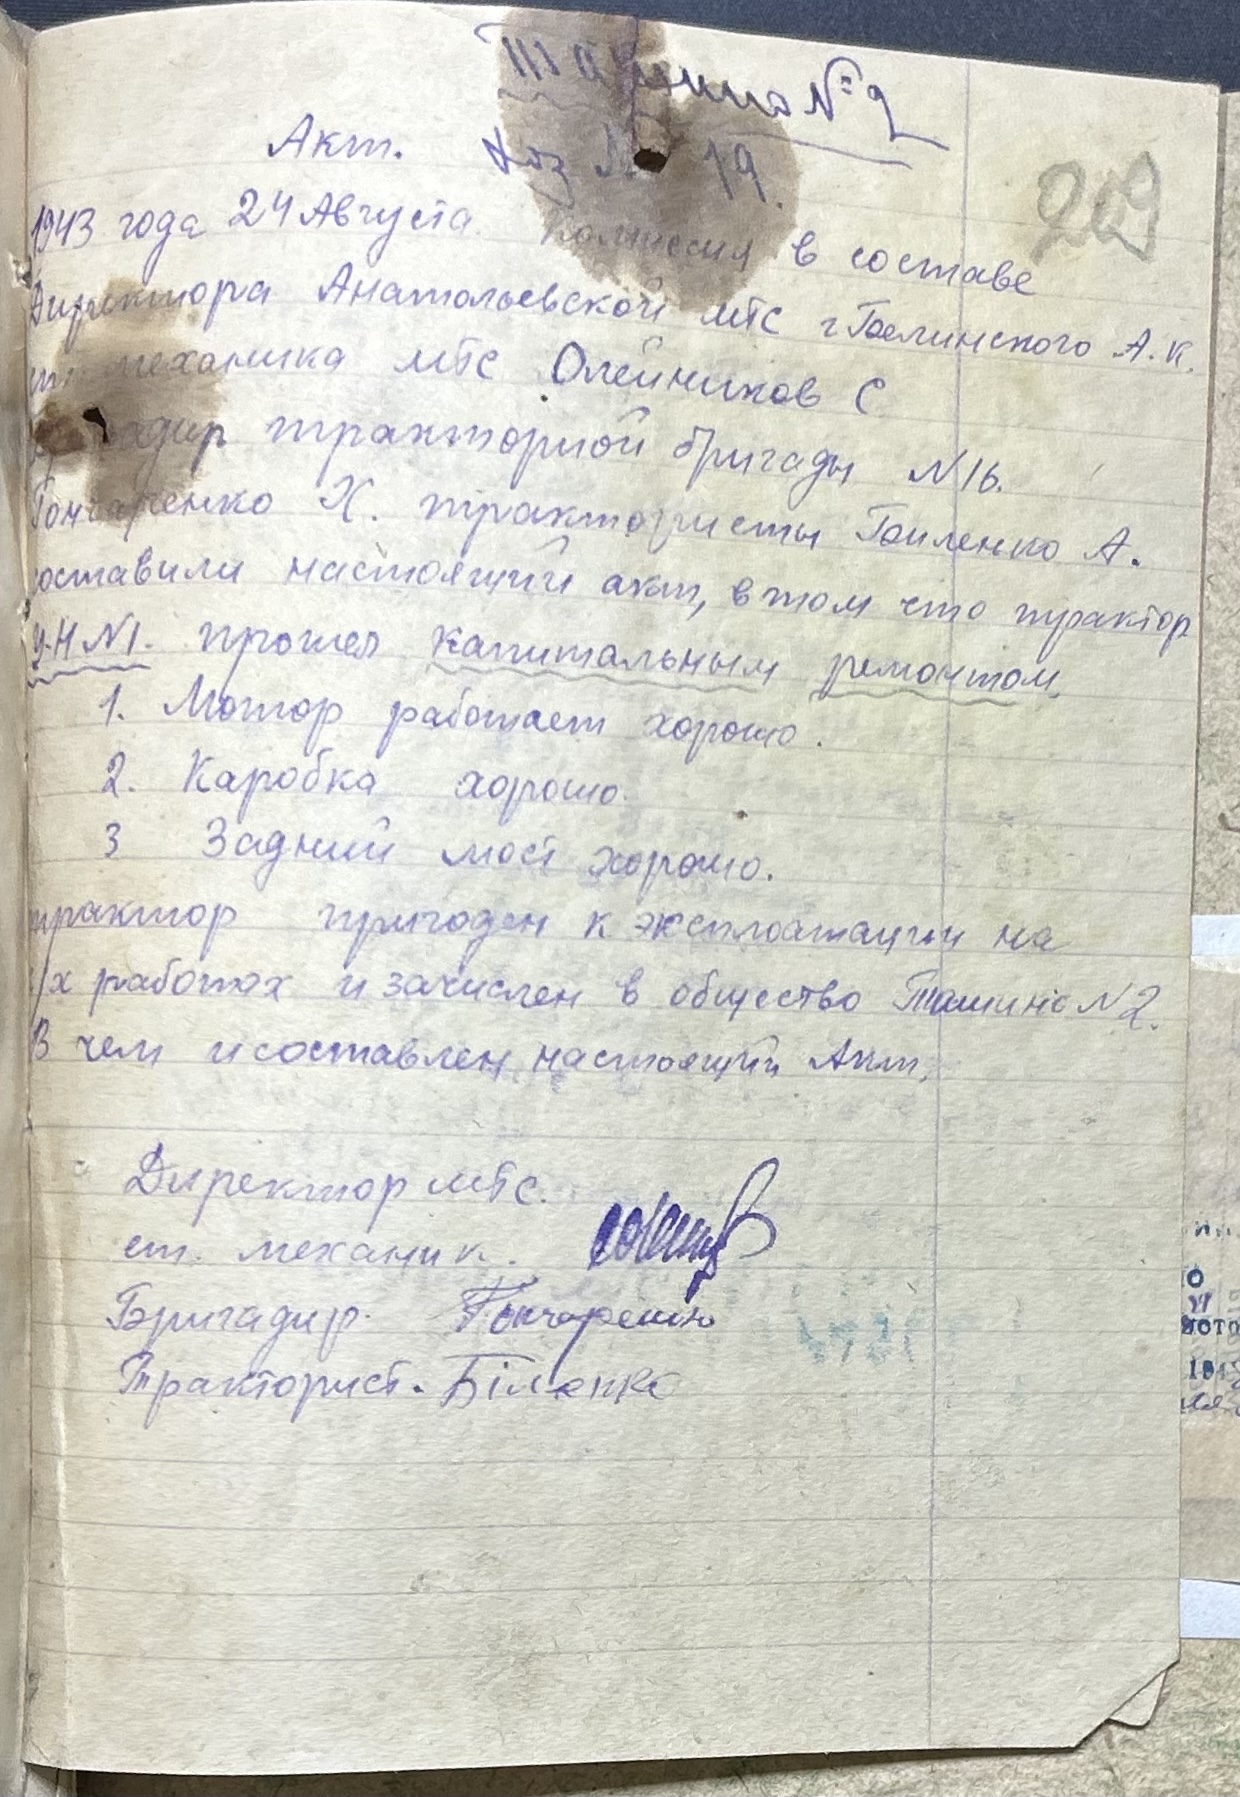 Ташино № 2
Акт. хоз № 19.
209
1943 года 24 Августа. Комиссия в составе
Директора Анатольевской МТС г Белинского А.К.
ст. механика МТС Олейников С
Бригадир тракторной бригады N16.
Гончаренко Х. трактористы Биленко А.
составили настоящий акт, в том что трактор
У-Н N1. прошел капитальным ремонтом,
1. Мотор работает хорошо.
2. Каробка хорошо.
3 Задний мост хорошо.
трактор пригоден к эксплоатации на
с/х работах и зачислен в общество Ташино N2.
В чем и составлен настоящий Акт.
Директор МТС.
ст. механик.
Бригадир. Гончаренко
Тракторист. Біленко